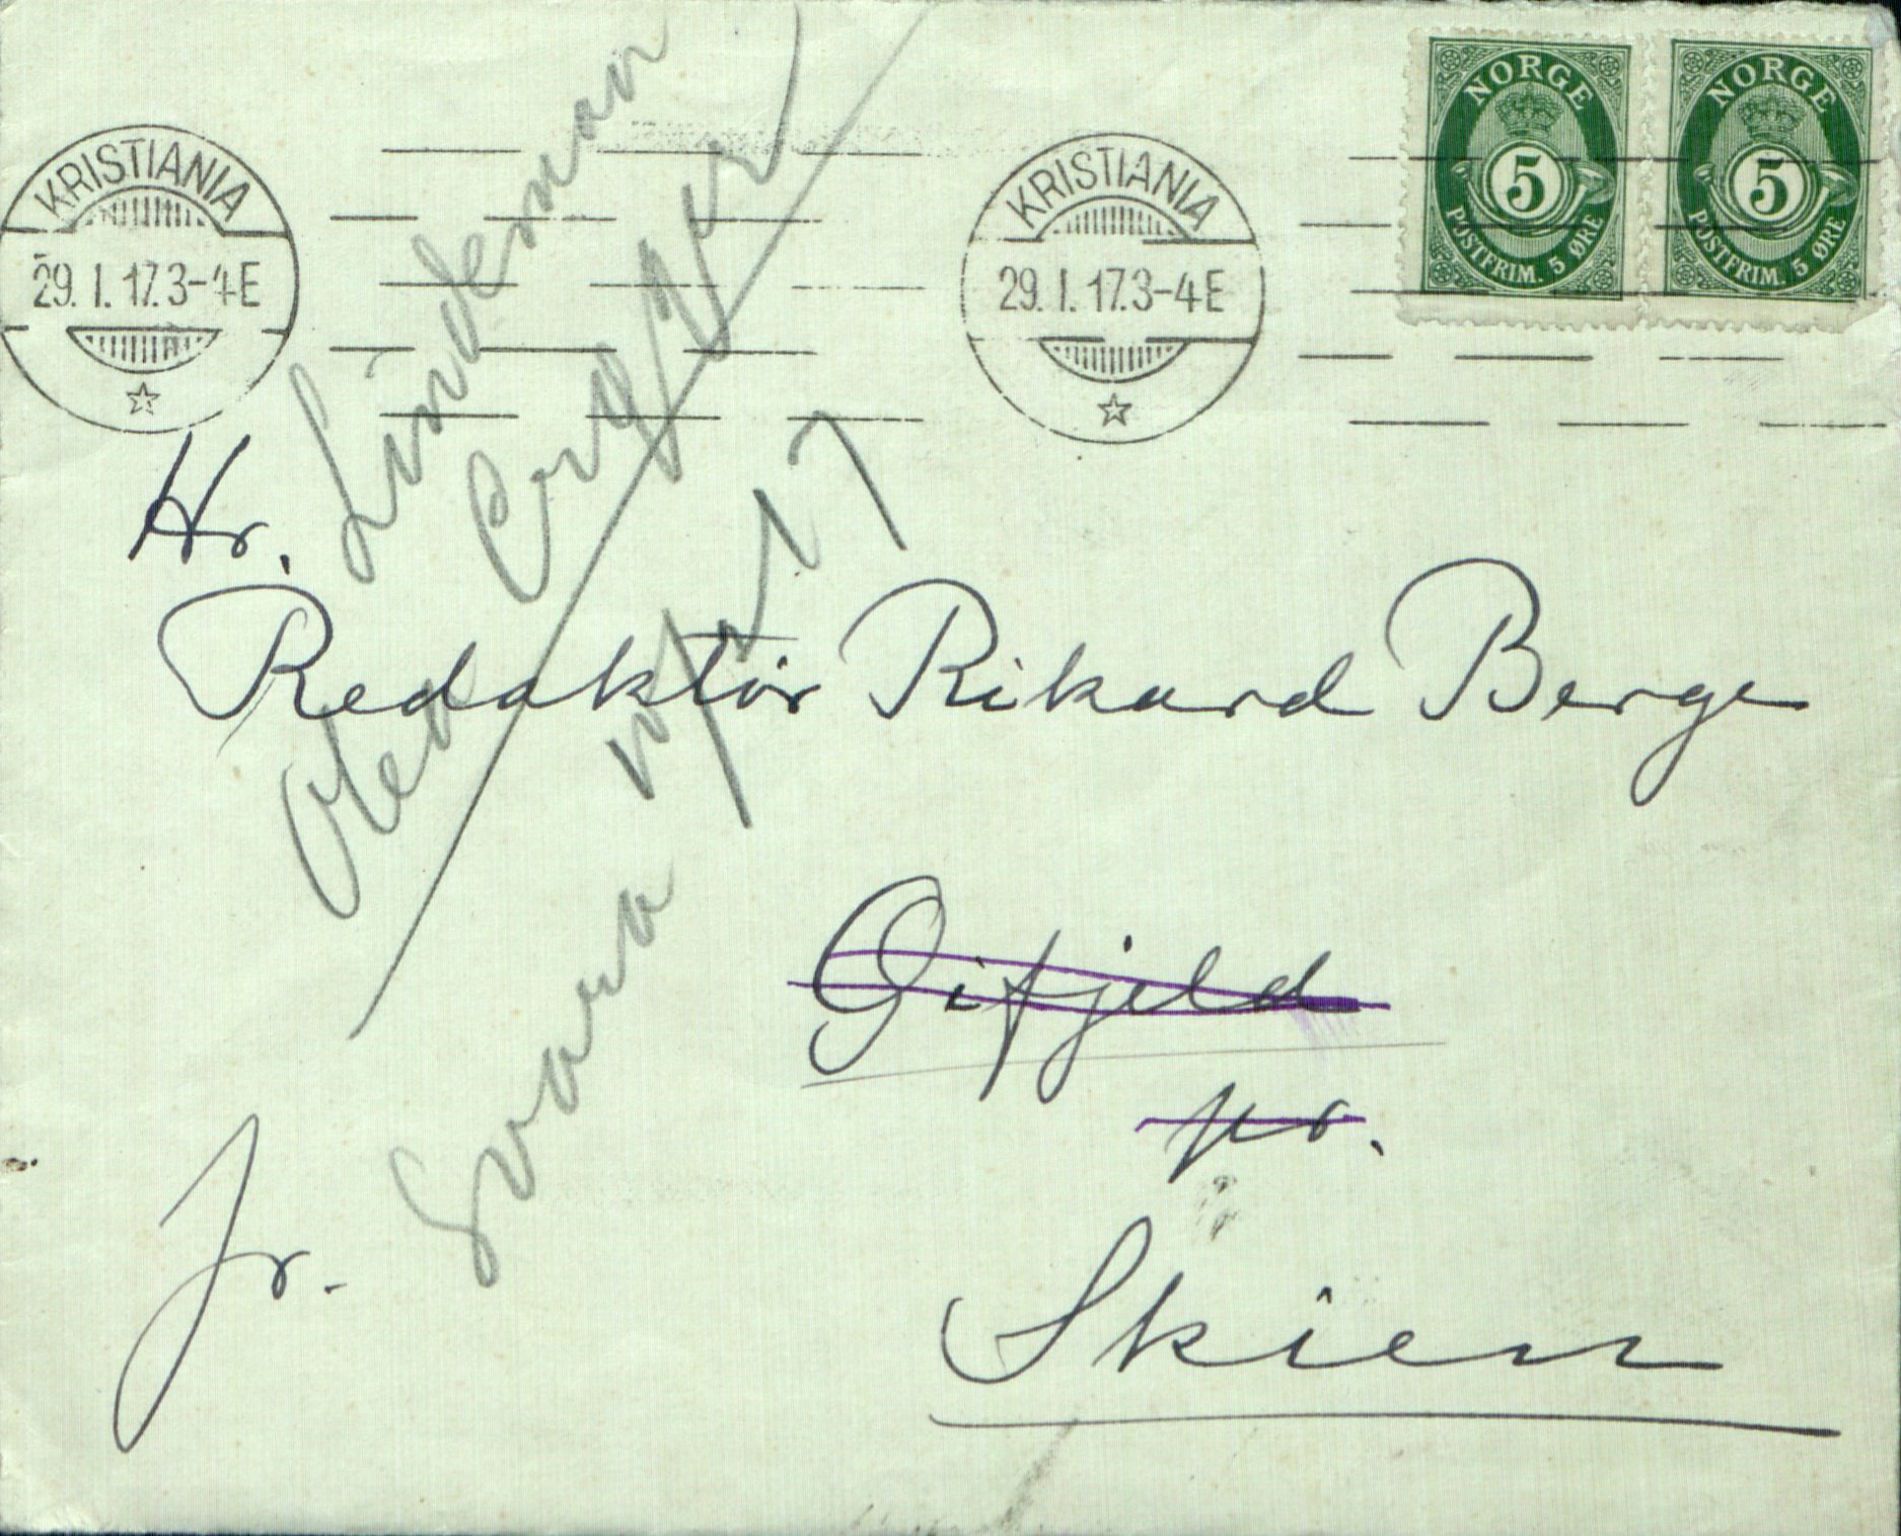 NORGE
5
POSTFRIM. 5 ØRE
NORGE
5
POSTFRIM. 5 ØRE
KRISTIANIA
29. I. 17. 3-4 E
KRISTIANIA
29. I. 17. 3-4 E
Hr.
Redaktør Rikard Berge
Gifjeld
pr.
Skien
Jr.
Lindeman
Svara
17